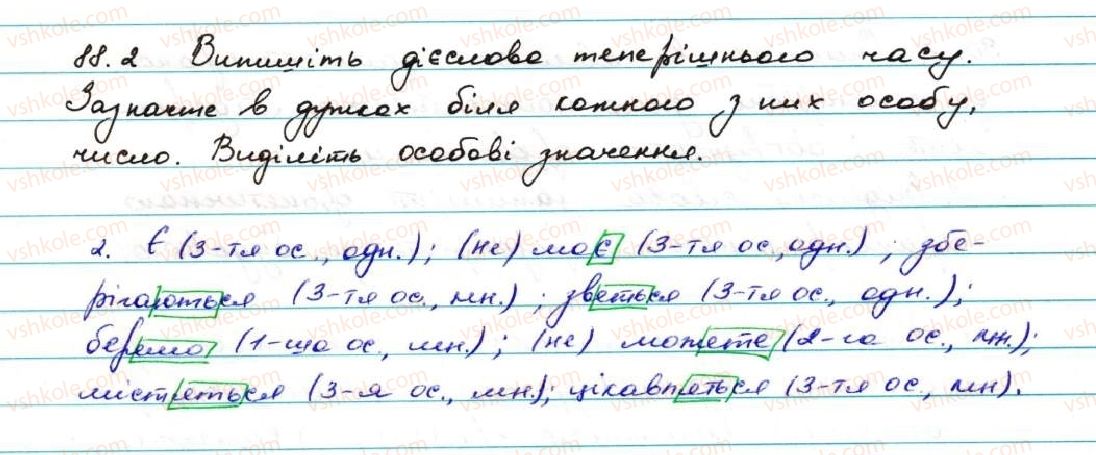 88.2 Випишіть дієслова теперішнього часу.
Зазначте в дужках біля кожного з них особу,
число. Виділіть особові значення.
2. Є (3-тя ос., одн.); (не) має (3-тя ос., одн.); збе-
рігаються (3-тя ос., мн.); зветься (3-тя ос., одн.);
беремо (1-ша ос., мн.); (не) можете (2-га ос., мн.);
містяться (3-я ос., мн.); цікавляться (3-тя ос., мн).